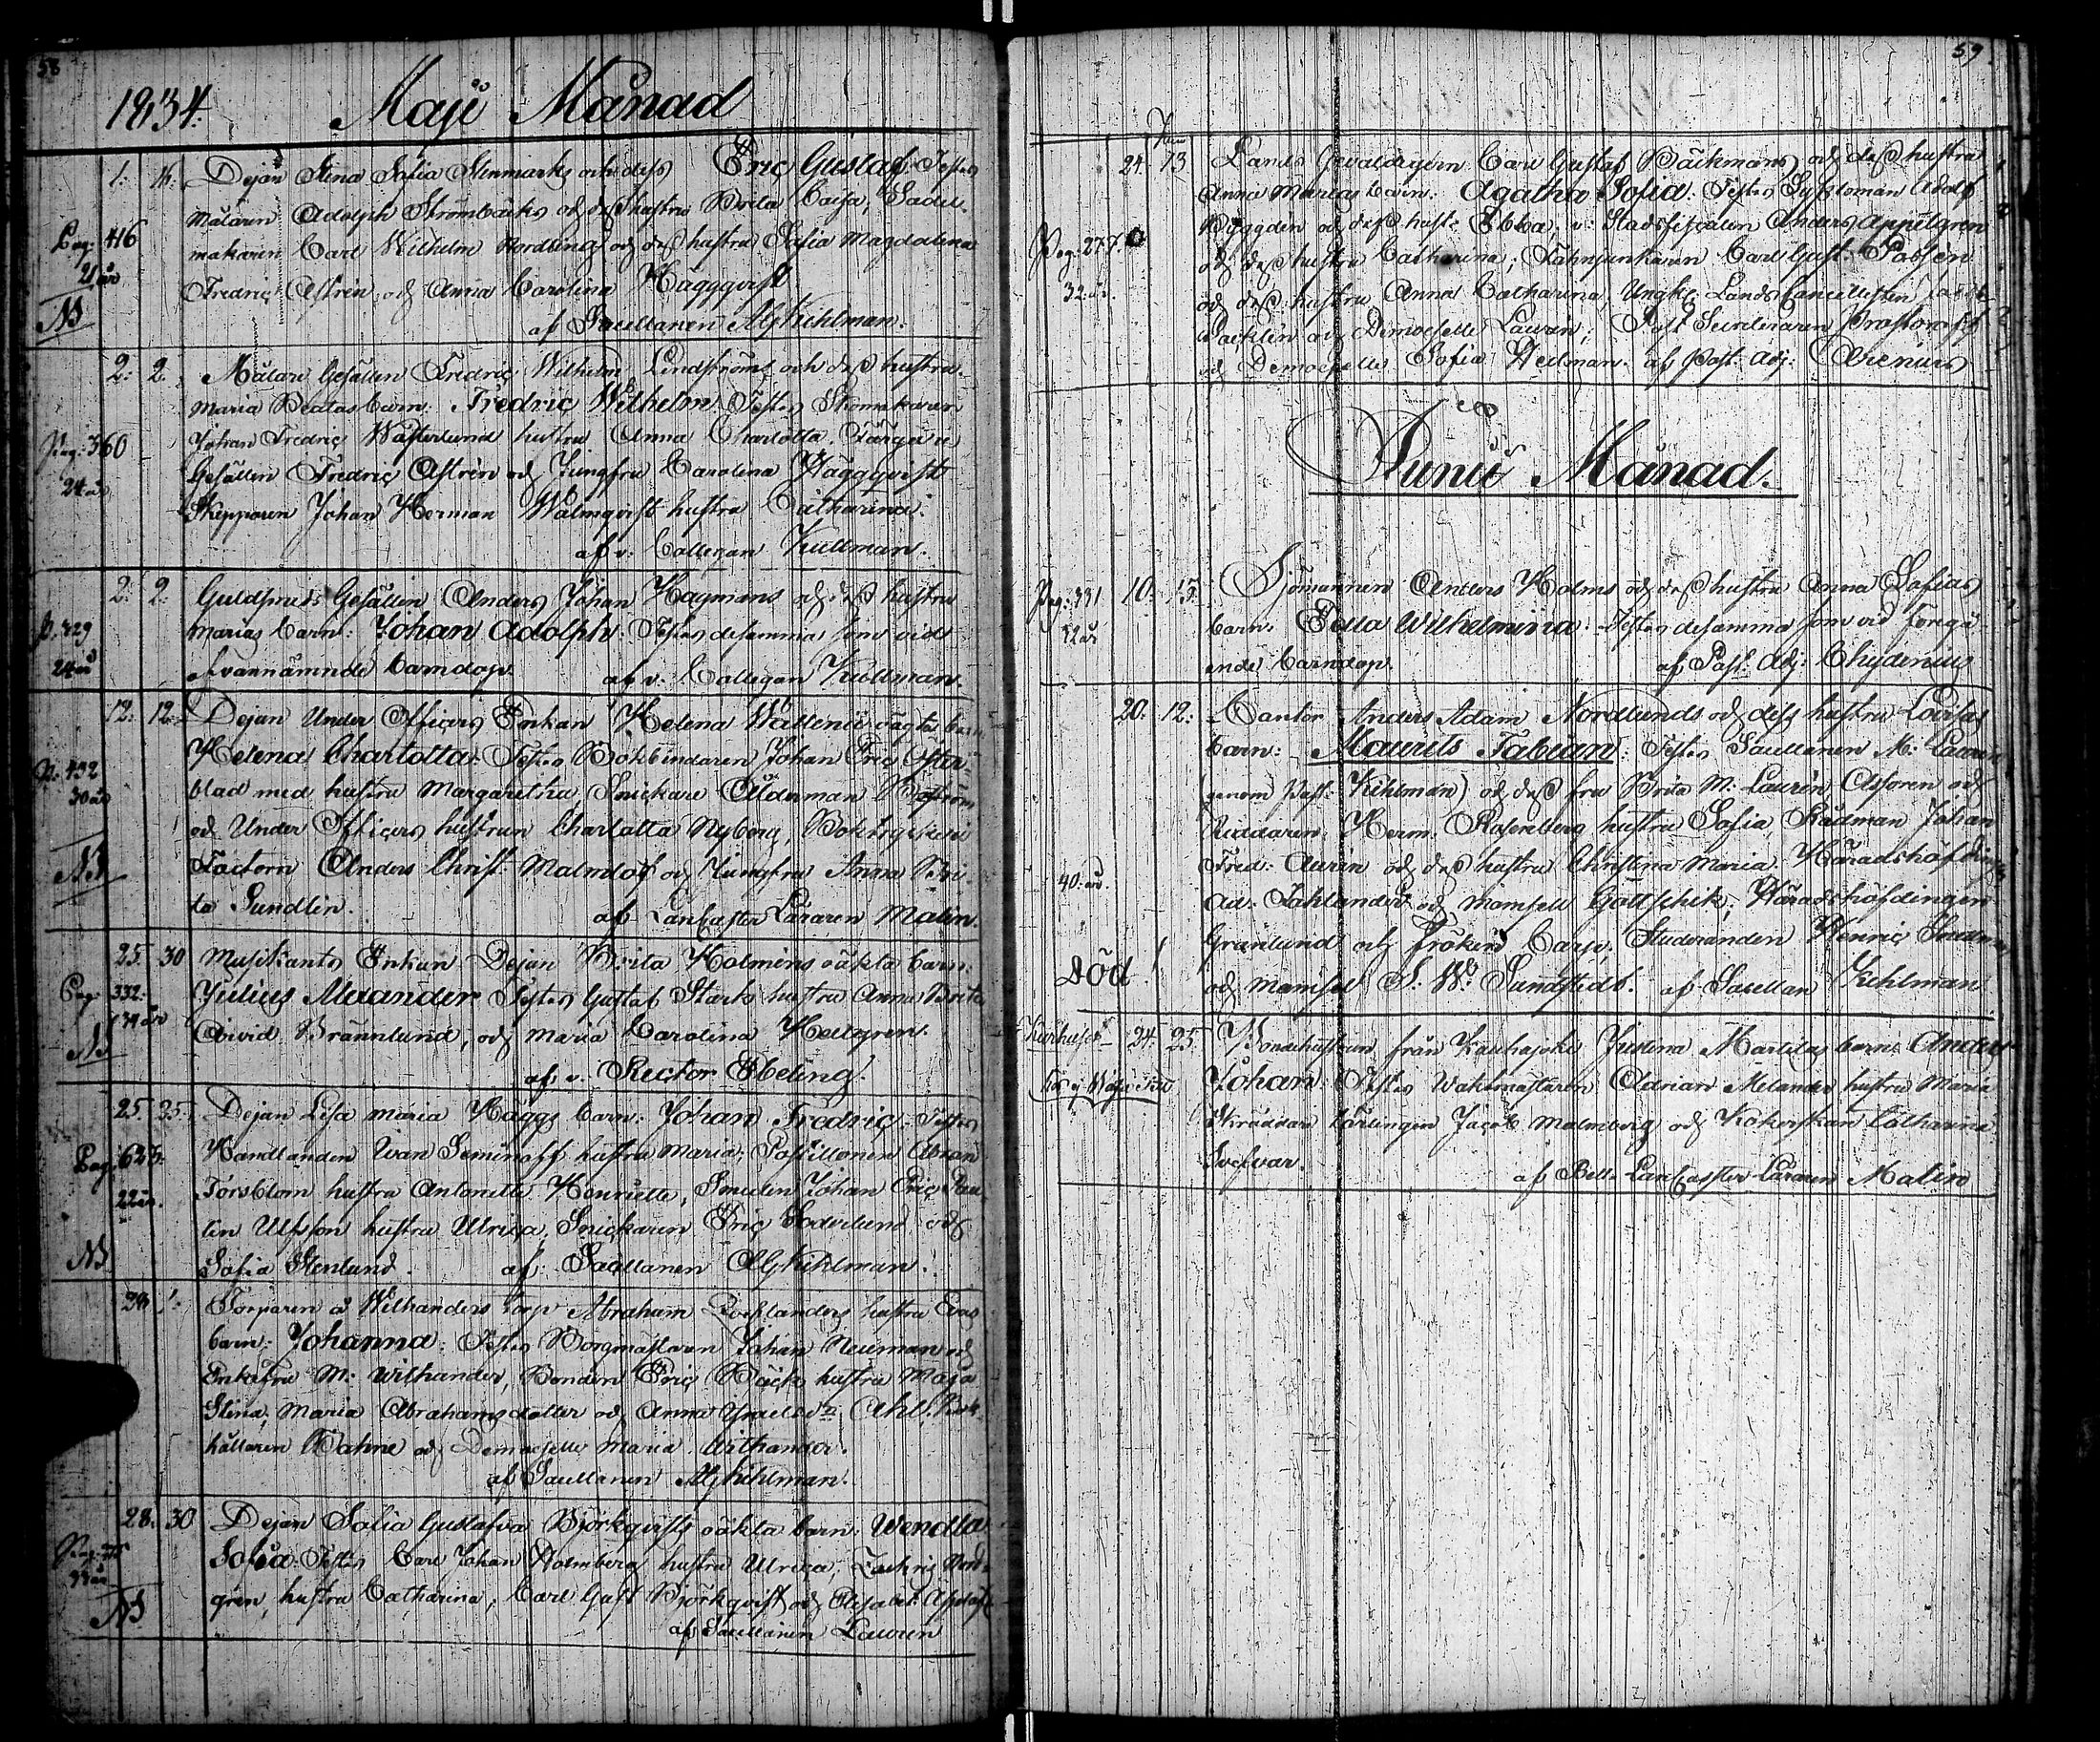 58
1834. Maji Månad
1: 16. Dejan Stina Sofia Stenmarks och dess Eric Gustaf: Testes
målaren Adolph Strömbäcks och dess hustru Brita Caisa, Sadel-
Pag: 416 makaren Carl Wilhelm Nordling och dess hustru Sofia Magdalena
21 år Fredric Astrén, och Anna Carolina Häggqvist
NB af Sacellanen AG Kihlman.
2: 2. Målare Gesällen Fredric Wilhelm Lindströms och dess hustru
Maria Beatas barn: Fredric Wilhelm: Testes Skomakaren
Pag: 360 Johan Fredric Wästerlund hustru Anna Charlotta, Färgare
24 år Gesällen Fredric Astrén och Jungfru Carolina Häggqvist
Skepparen Johan Herman Malmqvist hustru Catharina.
af v: Collegan Kullman.
2: 2: Guldsmeds Gesällen Anders Johan Hagmans och dess hustru
P. 329 Marias barn: Johan Adolph: Testes desamma som vid
24 år ofvannämnde barndop. af v: Collegan Kullman.
12: 12: Dejan Under Officers Enkan Helena Wallenii oägta barn
Helena Charlotta: Testes Bokbindaren Johan Eric Öster-
P. 432 blad med hustru Margaretha, Snickare Ålderman Boström
30 år och Under Officers hustrun Charlotta Nyberg, Boktryckeri
NB Factorn Anders Christ: Malmlöf och Jungfru Anna Bri-
ta Sundlin. af Lancaster Läraren Malin.
25 30 Musikants Enkan Dejan Brita Holmens oäkta barn:
Pag: 332: Julius Alexander Testes Gustaf Starks hustru Anna Brita
39 år Civid Brännlund, och Maria Carolina Hellgren.
NB af v. Rector Ebeling.
25. 25. Dejan Lisa Maria Häggs barn: Johan Fredric: Testes
Pag: 623: Handlanden Ivan Seminoff hustru Maria, Postillonen Abram
22 år. Forsblom hustru Antonette Henriette, Smeden Johan Eric Pau-
lin Ulfsson hustru Ulrica, Snickaren Eric Söderlund och
NB Sofia Stenlund. af: Sacellanen AG Kihlman.
28 1: Torparen å Withanders torp Abraham hustru Evas
barn: Johanna: Testes Borgmästaren Johan Neuman och
Enkefru M: Withander, Bonden Eric Bäck hustru Maja
Stina, Maria Abrahamsdotter och Anna Ahl. Bok-
hållaren och Demoiselle Maria Withander.
af Sacellanen AG Kihlman.
28: 30 Dejan Sofia Gustafva Björkqvists oäkta barn: Wendla
Sofia: Testes Carl Johan Holmberg hustru Ulrica, Zachris Nord-
33 år gren, hustru Catharina, Carl Gust Björkqvist och Elisabet
NB af Sacellanen Laurén
59.
24. 13 Lands Gevaldigern Carl Gustaf Bäckmans och dess hustru
Anna Marias barn: Agatha Sofia: Testes Sysloman Adolf
Pag. 277. Byggdén och dess hust: Ebba. v: Stadsfiscalen Anders Appelgren
och dess hustru Catharina; Fahnjunkaren Carl Gust:
32 år. och dess hustru Anna Catharina, Ungkl Lands Cancellisten
och Demoiselle Laurén; Post Secreteraren
och Demoiselle Sofia Hedman. af Past: Adj:
Junii Månad.
Pag: 331 10: 15: Sjömannen Anders Holms och dess hustru Anna Sofias
32 år barn: Edla Wilhelmina: Testes desamma som vid föregå
ende barndop. af Past: Adj: Chydenius
20: 12: Cantor Anders Adam Nordlunds och dess hustru Lovisas
barn: Maurits Fabian: Testes Sacellanen M: Laurén
(genom Past: Kihlman) och dess fru Brita M: Laurén, Assoren och
Riddaren Herm: Rosenberg hustru Sofia, Rådman Johan
Fred: Aurén och dess hustru Christina Maria. Häradshöfdingen
40: år. Ad: Fahlander och mamsell Gottschik; Häradshöfdingen
Granlund och Fröken Carp, Studeranden Henric
Död! och mamsell S. W. Sundstedt. af Sacellan Kihlman
Kurhuset 24: 25 Bondehustrun från Kauhajoki Justina Martilas barn: Anders
Johan: Testes Wahtmästaren Adrian Melander hustru Maria
Skräddare Lärlingen Jacob Malmberg och Kokerskan Catharina
af Bell. Lancaster Läraren Malin